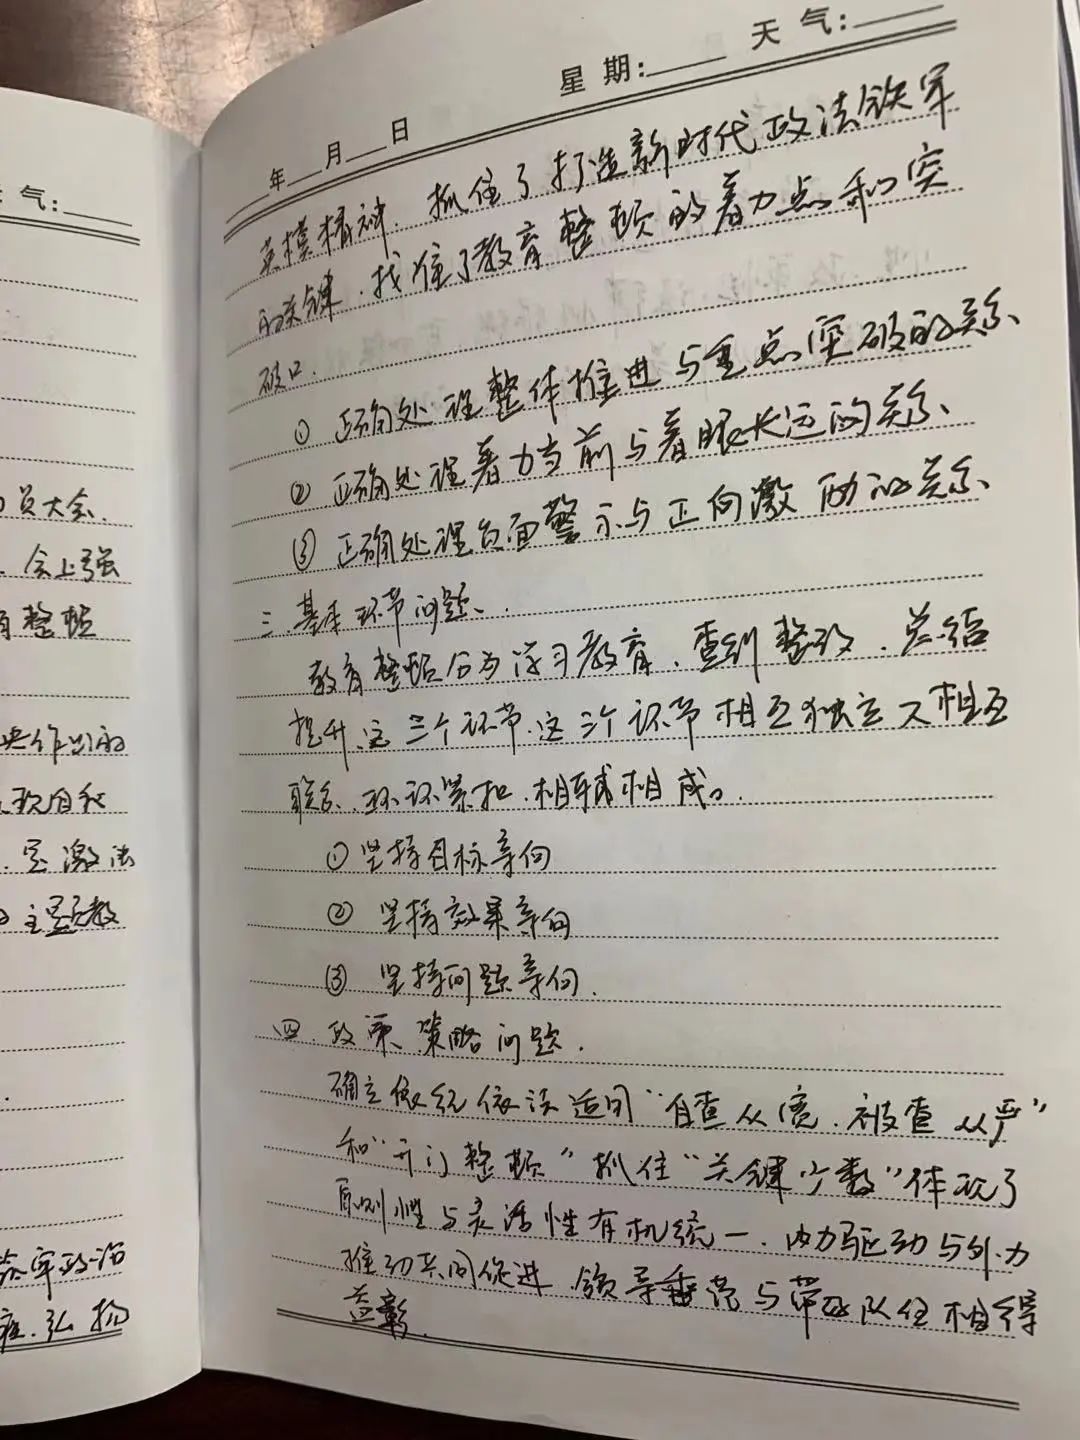 气:
员大会.
会上强
育整顿
央作出的
激法
主题教
铁军政治
弘扬
年 月 日 星期: 天气:
英模精神. 抓住了打造新时代政法铁军
的关键. 找准了教育整顿的着力点和突
破口.
① 正确处理整体推进与重点突破的关系、
② 正确处理着力当前与着眼长远的关系、
③ 正确处理负面警示与正向激励的关系、
三. 基本环节问题.
教育整顿分为学习教育、查纠整改、总结
提升.这三个环节.这三个环节相互独立又相互
联系.环环紧扣.相辅相成。
① 坚持目标导向
② 坚持效果导向
③ 坚持问题导向.
四. 政策策略问题.
确立依纪依法适用“自查从宽.被查从严”
和“开门整顿”抓住“关键少数”体现了
原则性与灵活性有机统一.内力驱动与外力
推动共同促进.领导垂范与带好队伍相得
益彰.